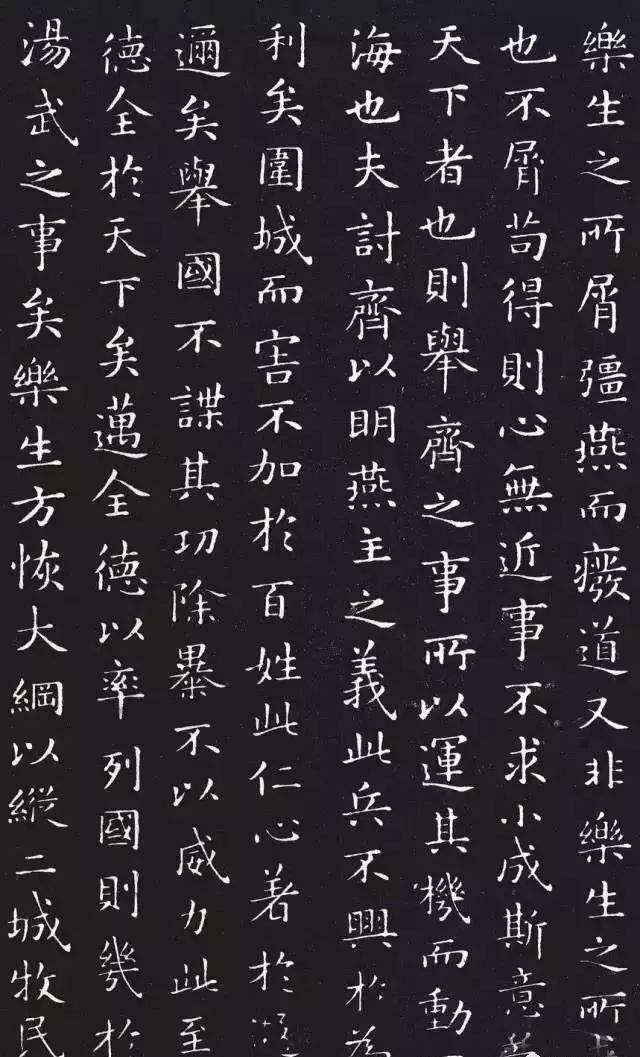 樂生之所屑彊燕而癈道又非樂生之所
也不屑苟得則心無近事不求小成斯意
天下者也則舉齊之事所以運其機而動
海也夫討齊以明燕主之義此兵不興於為
利矣圍城而害不加於百姓此仁心著於
邇矣舉國不謀其功除暴不以威力此至
德全於天下矣邁全德以率列國則幾於
湯武之事矣樂生方恢大綱以縱二城牧民